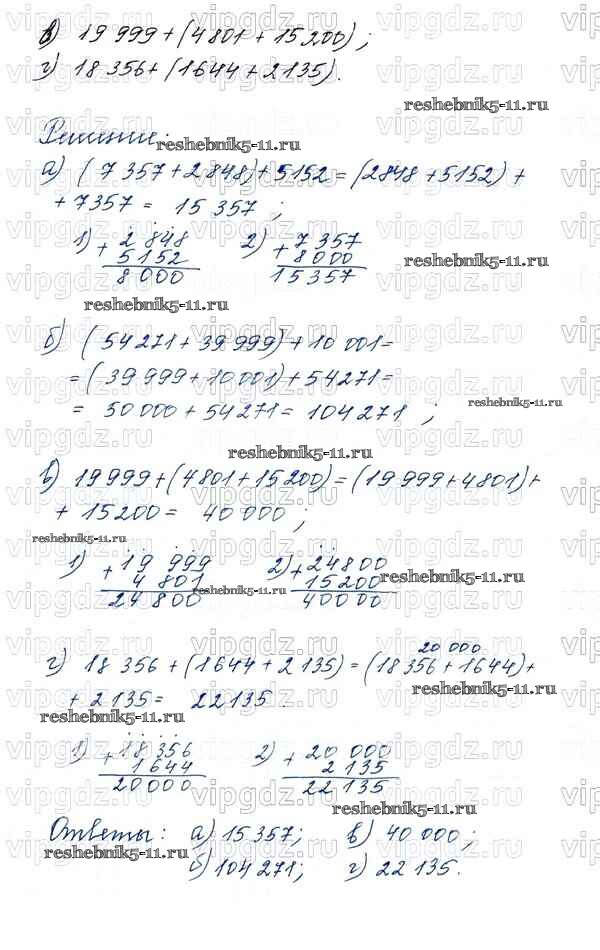 в) 19 999 + (4801 + 15 200);
г) 18 356 + (1644 + 2135).
reshebnik5-11.ru
Решение:
reshebnik5-11.ru
а) (7357 + 2848) + 5152 = (2848 + 5152) +
+ 7357 = 15 357;
1) + 2 848
5152
8 000
2) + 7 357
8 000
15 357
reshebnik5-11.ru
б) (54 271 + 39 999) + 10 001 =
= (39 999 + 10 001) + 54 271 =
= 50 000 + 54 271 = 104 271;
reshebnik5-11.ru
reshebnik5-11.ru
в) 19 999 + (4801 + 15 200) = (19 999 + 4801) +
+ 15 200 = 40 000;
reshebnik5-11.ru
1) + 19 999
4 801
24 800
2) + 24800
15200
40000
reshebnik5-11.ru
reshebnik5-11.ru
20 000
г) 18 356 + (1644 + 2135) = (18 356 + 1644) +
+ 2135 = 22 135.
reshebnik5-11.ru
reshebnik5-11.ru
1) + 18 356
1 644
20 000
2) + 20 000
2 135
22 135
reshebnik5-11.ru
Ответы: а) 15 357; в) 40 000;
reshebnik5-11.ru
б) 104 271; г) 22 135.
vipgdz.ru